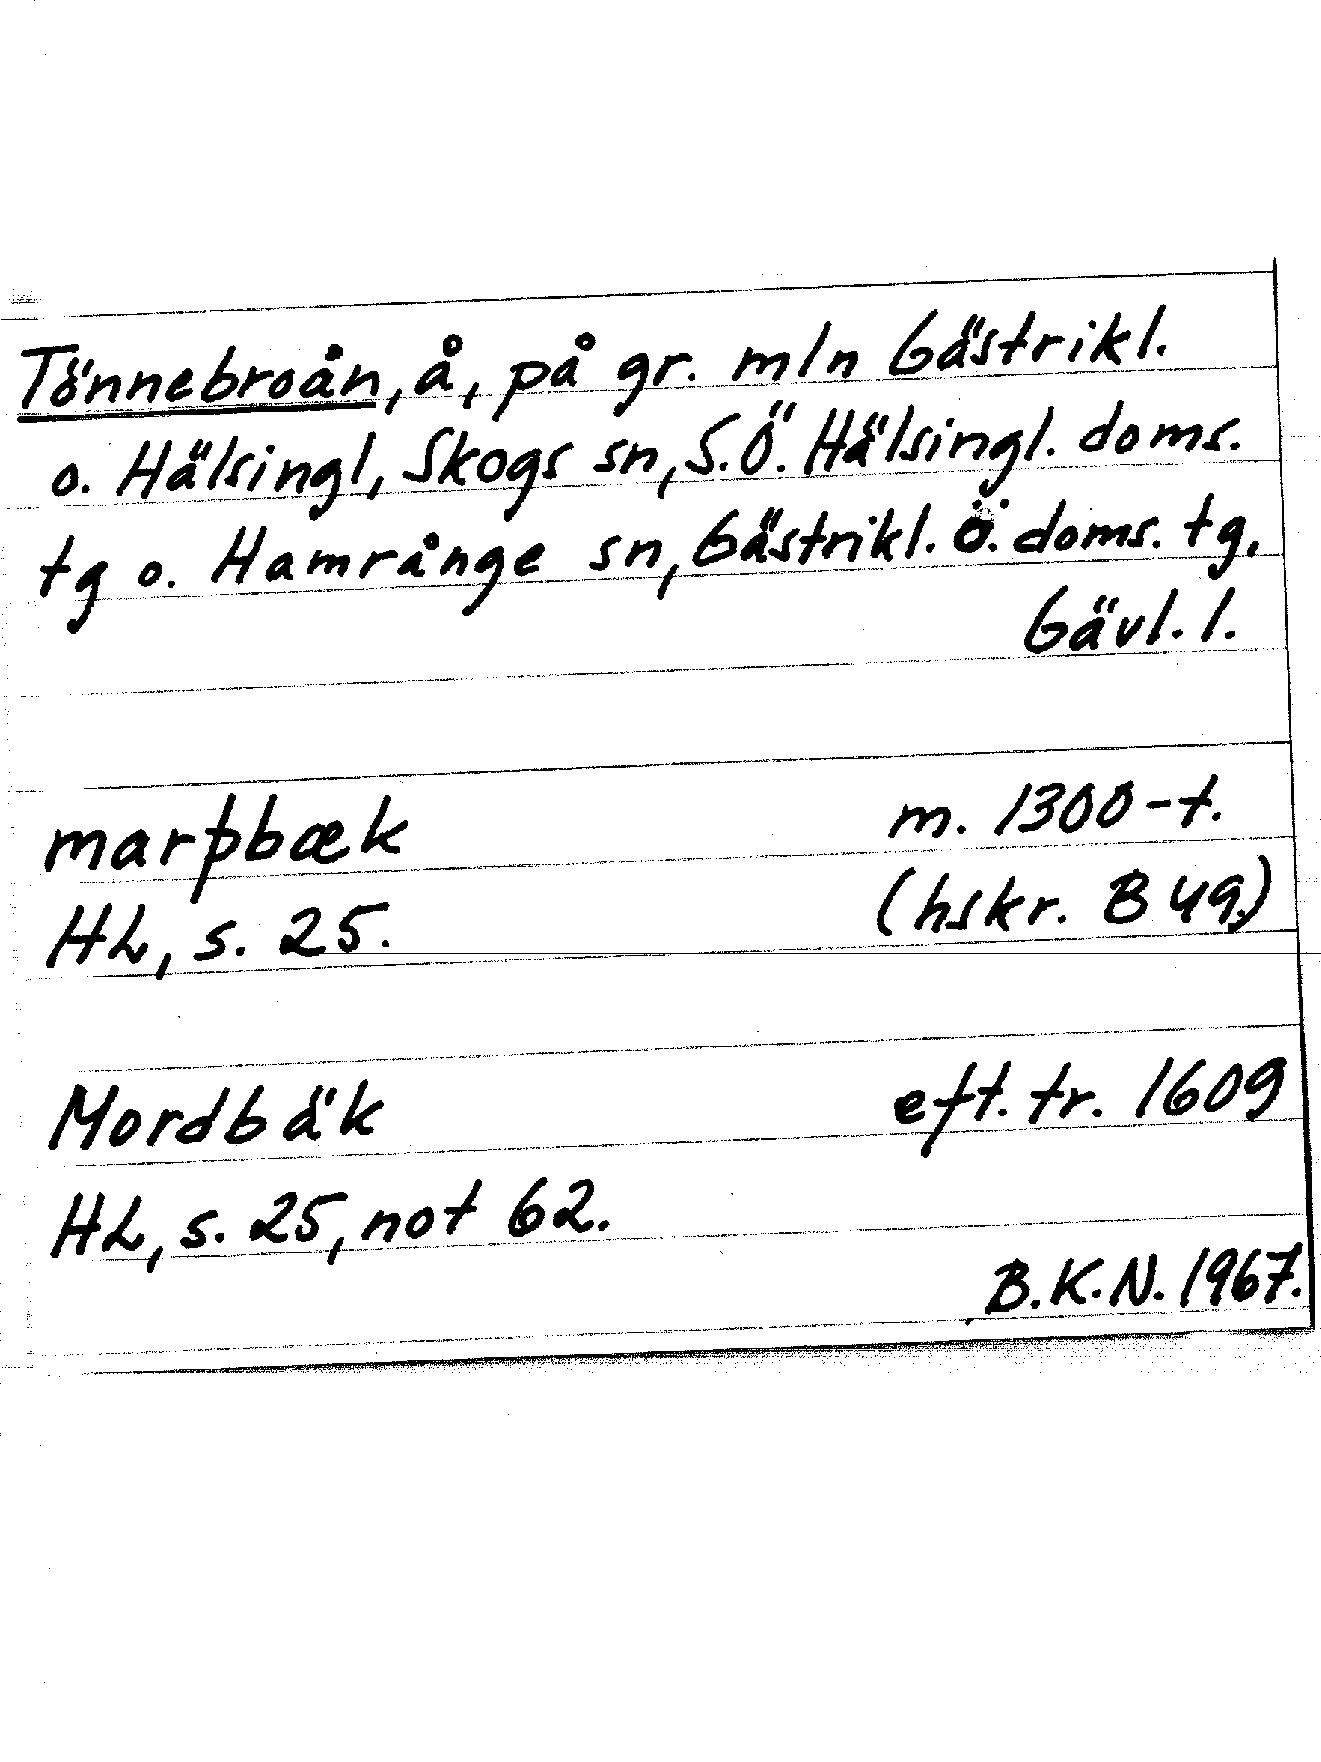 Tönnebroån, å, på gr. mln Gästrikl.
o. Hälsingl, Skogs sn, S.Ö. Hälsingl. doms.
tg o. Hamrånge sn, Gästrikl. Ö. doms. tg,
Gävl. l.
marþbæk m. 1300-t.
HL, s. 25. (hskr. B 49.)
Mordbäk eft. tr. 1609
HL, s. 25, not 62.
B.K.N. 1967.